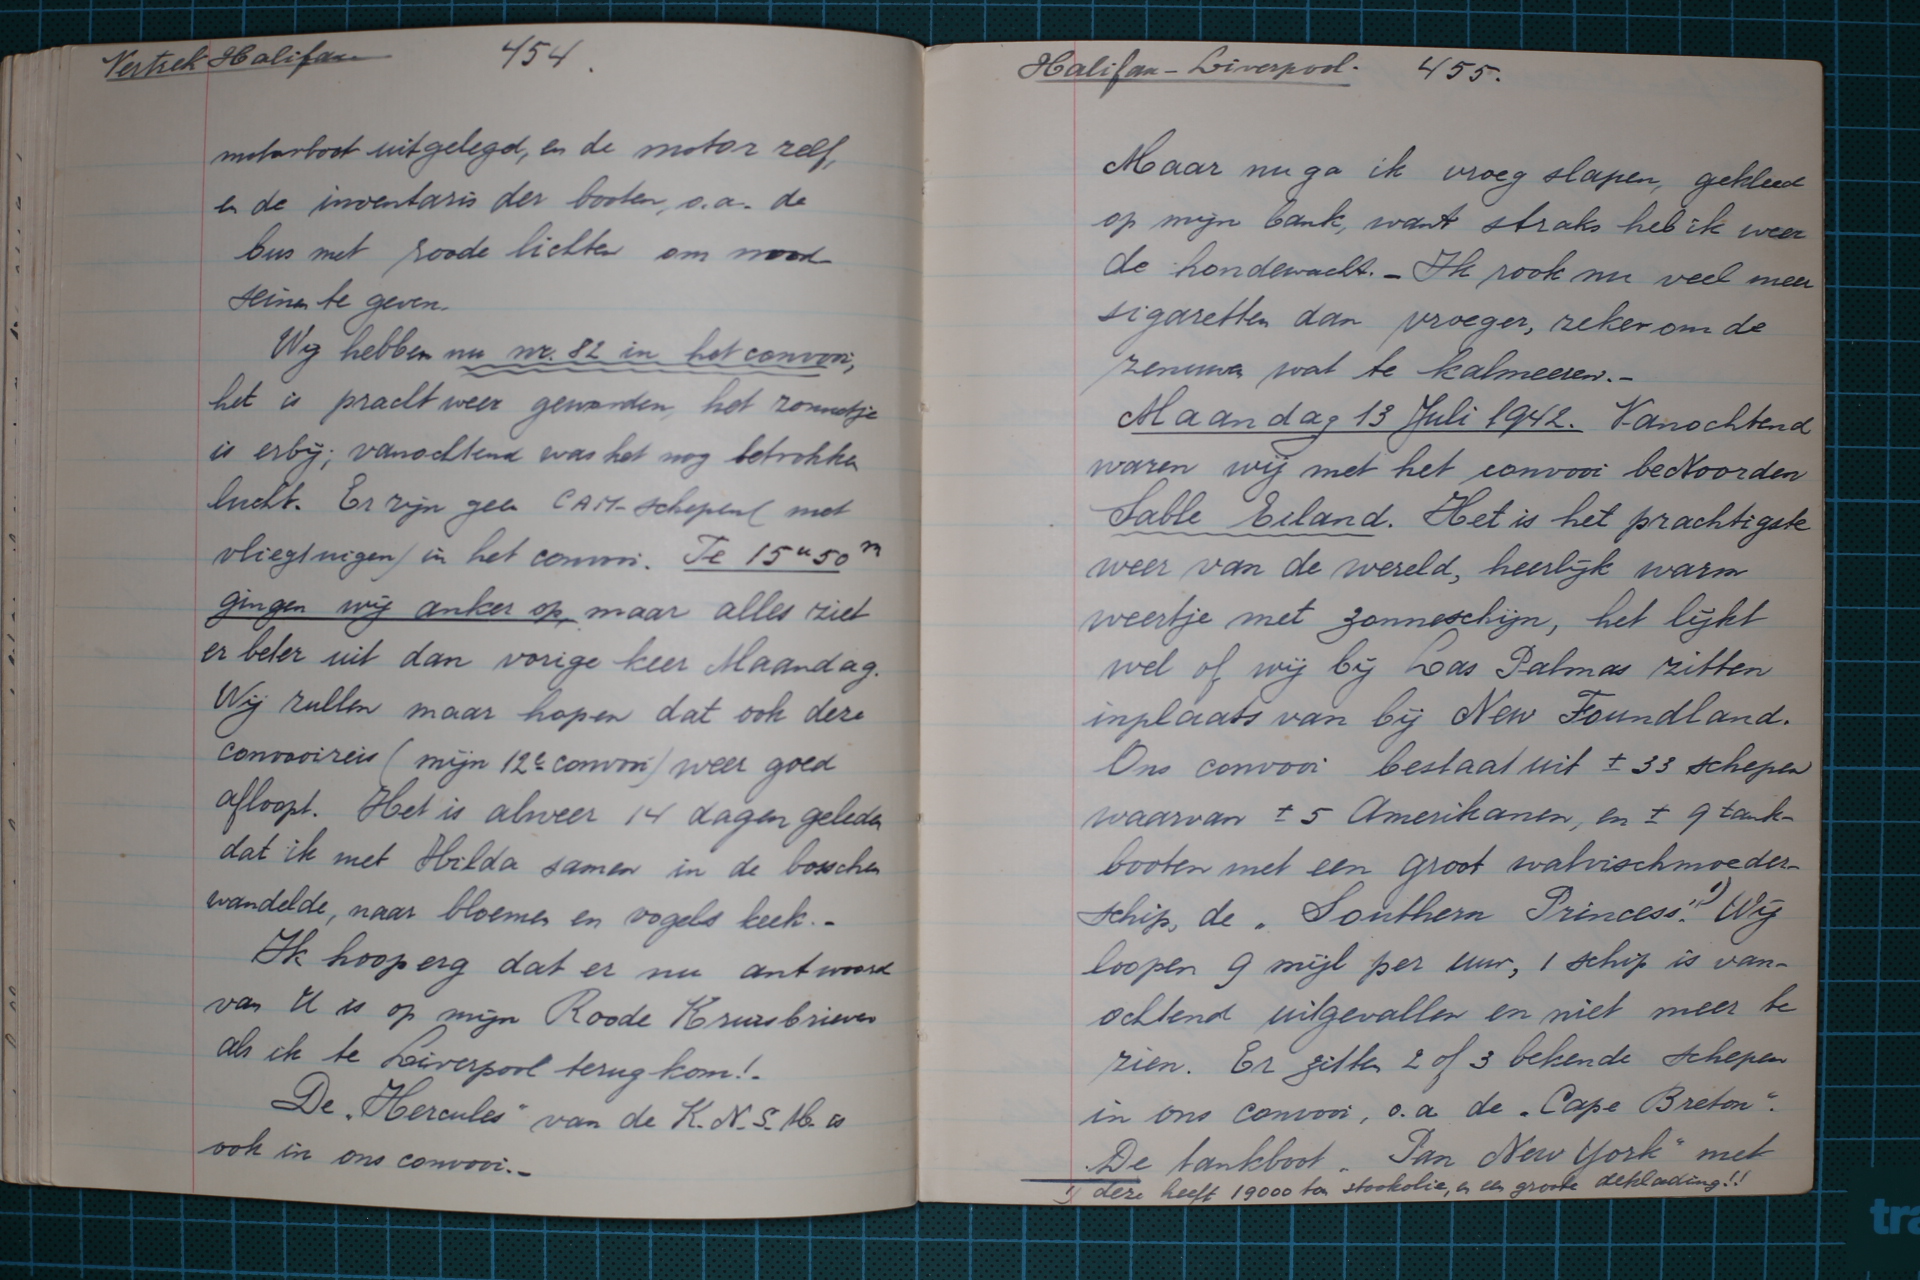 Vertrek Halifax 454.
motorboot uitgelegd, en de motor zelf,
en de inventaris der booten, o.a. de
bus met roode lichten om nood-
seinen te geven.
Wij hebben nu nr. 82 in het convooi,
het is pracht weer geworden, het zonnetje
is erbij; vanochtend was het nog betrokken
lucht. Er zijn geen CAM-schepen (met
vliegtuigen) in het convooi. Te 15u50m
gingen wij anker op, maar alles ziet
er beter uit dan vorige keer Maandag.
Wij zullen maar hopen dat ook deze
convooireis (mijn 12e convooi) weer goed
afloopt. Het is alweer 14 dagen geleden
dat ik met Hilda samen in de bosschen
wandelde, naar bloemen en vogels keek.-
Ik hoop erg dat er nu antwoord
van U is op mijn Roode Kruisbrieven
als ik te Liverpool terug kom!-
De „Hercules" van de K.N.S.M. is
ook in ons convooi.-
Halifax - Liverpool. 455.
Maar nu ga ik vroeg slapen, gekleed
op mijn bank, want straks heb ik weer
de hondewacht.- Ik rook nu veel meer
sigaretten dan vroeger, zeker om de
zenuwen wat te kalmeeren.-
Maandag 13 Juli 1942. Vanochtend
waren wij met het convooi beNoorden
Sable Eiland. Het is het prachtigste
weer van de wereld, heerlijk warm
weertje met zonneschijn, het lijkt
wel of wij bij Las Palmas zitten
inplaats van bij New Foundland.
Ons convooi bestaat uit ± 33 schepen
waarvan ± 5 Amerikanen, en ± 9 tank-
booten met een groot walvischmoeder-
schip, de „Southern Princess".1) Wij
loopen 9 mijl per uur, 1 schip is van-
ochtend uitgevallen en niet meer te
zien. Er zitten 2 of 3 bekende schepen
in ons convooi, o.a. de „Cape Breton".
De tankboot „Pan New York" met
1) deze heeft 19000 ton stookolie, en een groote deklading!!
tra